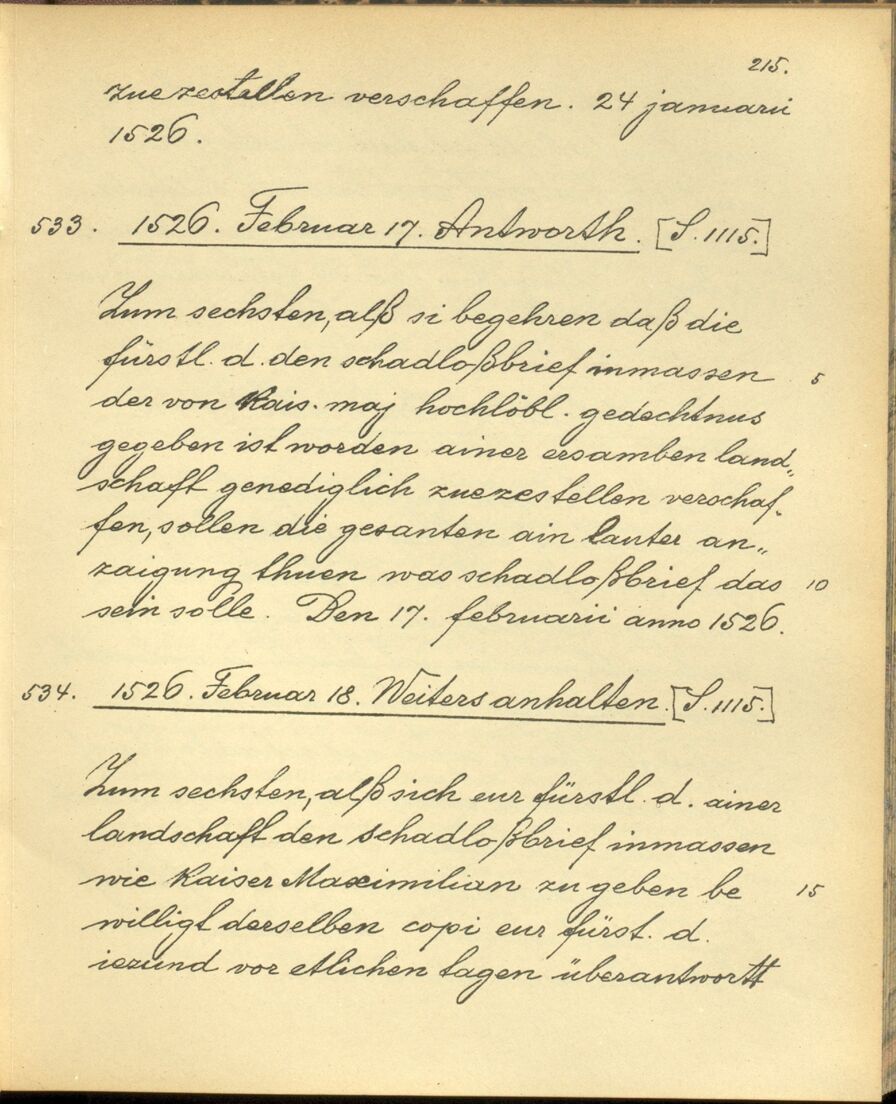 215.
zuezestellen verschaffen. 24 januarii
1526.
533. 1526. Februar 17. Antworth. [S. 1115.]
Zum sechsten, alß si begehren daß die
fürstl. d. den schadloßbrief inmassen 5
der von kais. maj hochlöbl. gedechtnus
gegeben ist worden ainer ersamben land„
schaft genediglich zuezestellen verschaf„
fen, sollen die gesanten ain lauter an„
zaigung thuen was schadloßbrief das 10
sein solle. Den 17. februarii anno 1526.
534. 1526. Februar 18. Weiters anhalten. [S. 1115.]
Zum sechsten, alß sich eur fürstl. d. ainer
landschaft den schadloßbrief inmassen
wie kaiser Maximilian zu geben be 15
willigt derselben copi eur fürst. d.
iezund vor etlichen tagen überantwortt